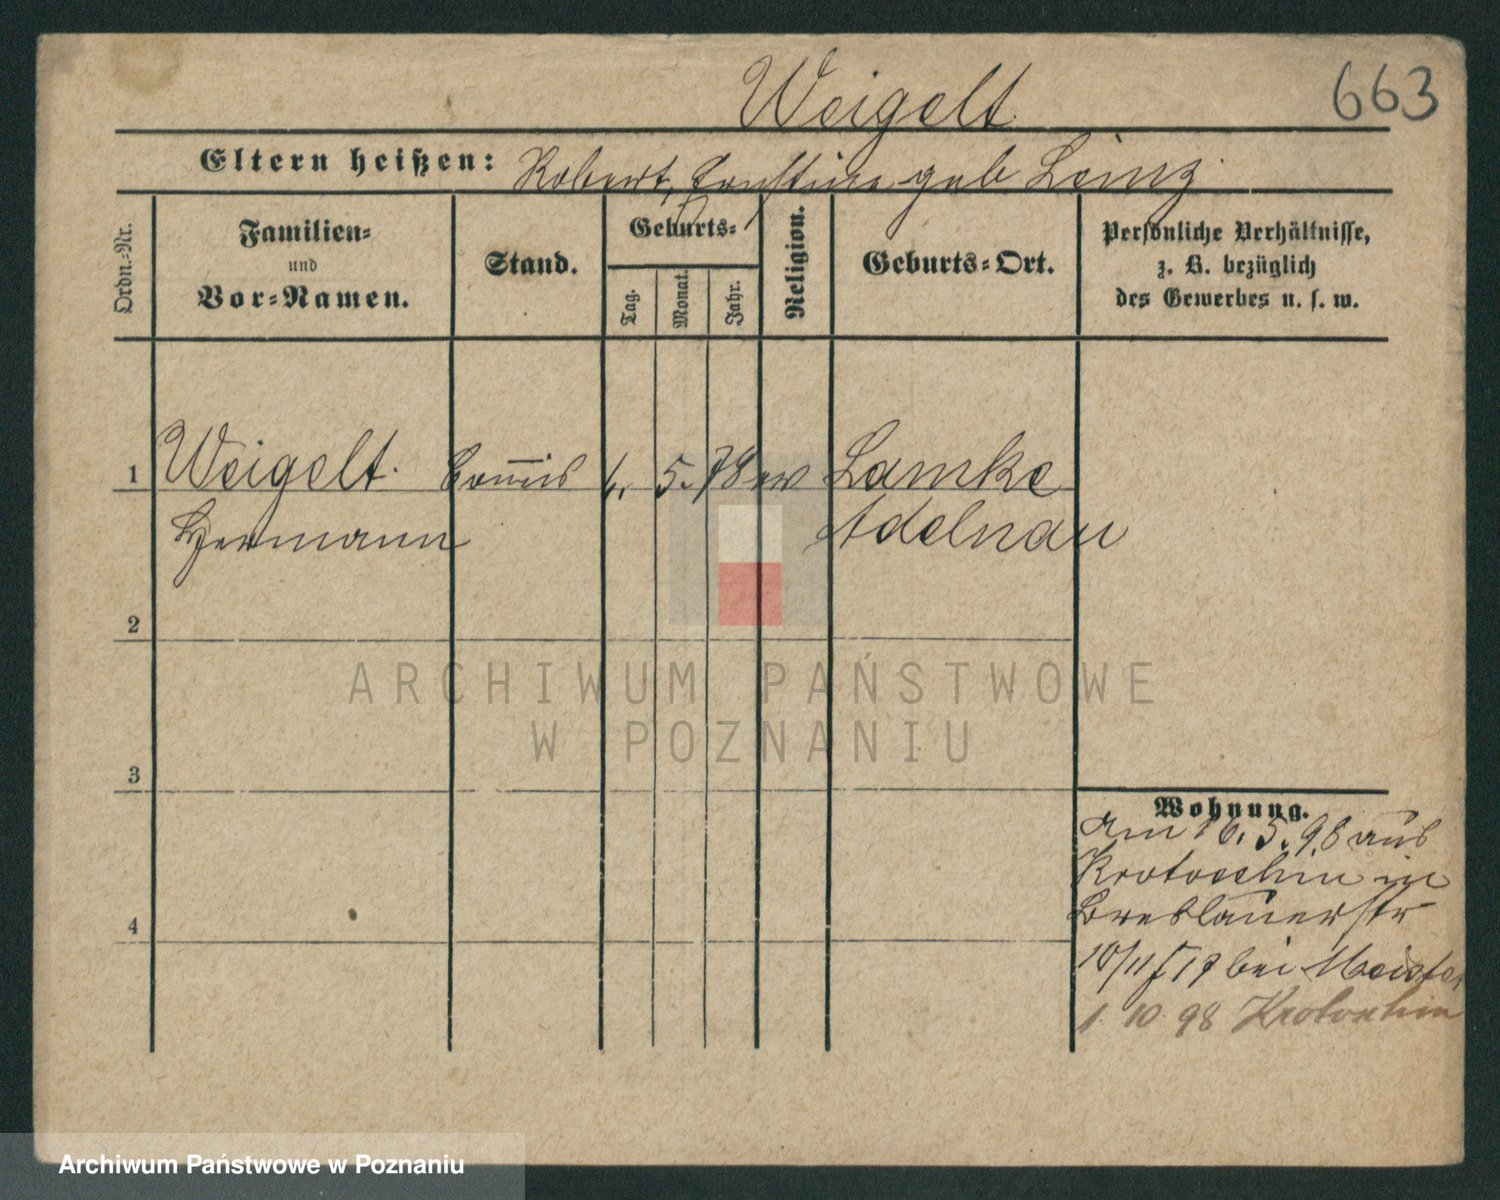 Weigelt
663
Eltern heißen: Robert, Ernstine geb Leinz
Ordn.-Nr.
Familien-
und
Vor-Namen.
Stand.
Geburts-
Tag.
Monat.
Jahr.
Religion.
Geburts-Ort.
Persönliche Verhältnisse,
z. B. bezüglich
des Gewerbes u. s. w.
1 Weigelt. Commis 1. 5. 78 ev Lamke
Hermann Adelnau
2
3
4
Wohnung.
Am 16. 5. 98 aus
Krotoschin in
Breslauerstr
10/11 17 bei Meister
1. 10. 98 Krotoschin
ARCHIWUM PAŃSTWOWE
W POZNANIU
Archiwum Państwowe w Poznaniu